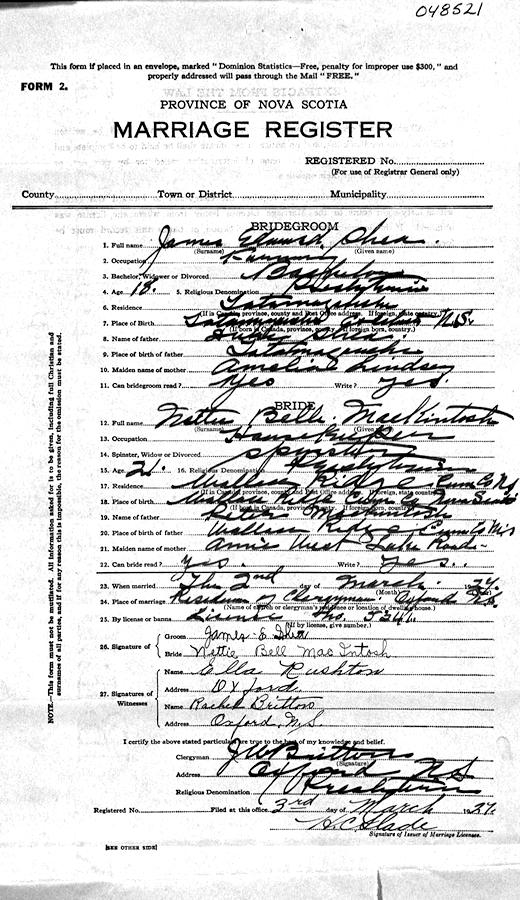 048521
This form if placed in an envelope, marked "Dominion Statistics—Free, penalty for improper use $300," and
properly addressed will pass through the Mail "FREE."
FORM 2.
PROVINCE OF NOVA SCOTIA
MARRIAGE REGISTER
REGISTERED No.
(For use of Registrar General only)
County Town or District Municipality
BRIDEGROOM
1. Full name James Edward Shea.
(Surname) (Given name)
2. Occupation Farming
3. Bachelor, Widower or Divorced Bachelor
4. Age 18. 5. Religious Denomination Presbyterian
6. Residence Tatamagouche
(If in Canada, province, county and Post Office address. If foreign, state country.)
7. Place of Birth Tatamagouche N.S.
(If born in Canada, province, county. If foreign born, country.)
8. Name of father Shea.
9. Place of birth of father Tatamagouche
10. Maiden name of mother Amelia Lindsey
11. Can bridegroom read? Yes Write? Yes.
BRIDE
12. Full name Nettie Belle MacKintosh
(Surname) (Given name)
13. Occupation Housekeeper
14. Spinster, Widow or Divorced Spinster
15. Age 21. 16. Religious Denomination Presbyterian
17. Residence Wallace Ridge Cum Co N.S
(If in Canada, province, county and Post Office address. If foreign, state country.)
18. Place of birth Nova Scotia
(If born in Canada, province, county. If foreign born, country.)
19. Name of father Peter MacKintosh
20. Place of birth of father Wallace Ridge Cum Co N.S
21. Maiden name of mother Annie West Lake Road
22. Can bride read? Yes. Write? Yes.
23. When married The 2nd day of March 1927.
(Month)
24. Place of marriage Residence of Clergyman Oxford N.S.
(Name of church or clergyman's residence or location of dwelling house.)
25. By license or banns License No. 5341.
(If by license, give number.)
26. Signature of Groom James E Shea
Bride Nettie Bell MacIntosh
27. Signatures of Witnesses
Name Ella Rushton
Address Oxford.
Name Rachel Britton
Address Oxford, N.S
I certify the above stated particulars are true to the best of my knowledge and belief.
Clergyman J W Britton
(Signature)
Address Oxford N.S.
Religious Denomination Presbyterian
Registered No. Filed at this office 3rd day of March 1927.
H.C. Slade
Signature of Issuer of Marriage Licenses.
[SEE OTHER SIDE]
NOTE.—This form must not be mutilated. All information asked for is to be given, including full Christian and
surnames of all parties, and if for any reason this is impossible, the reason for the omission must be stated.